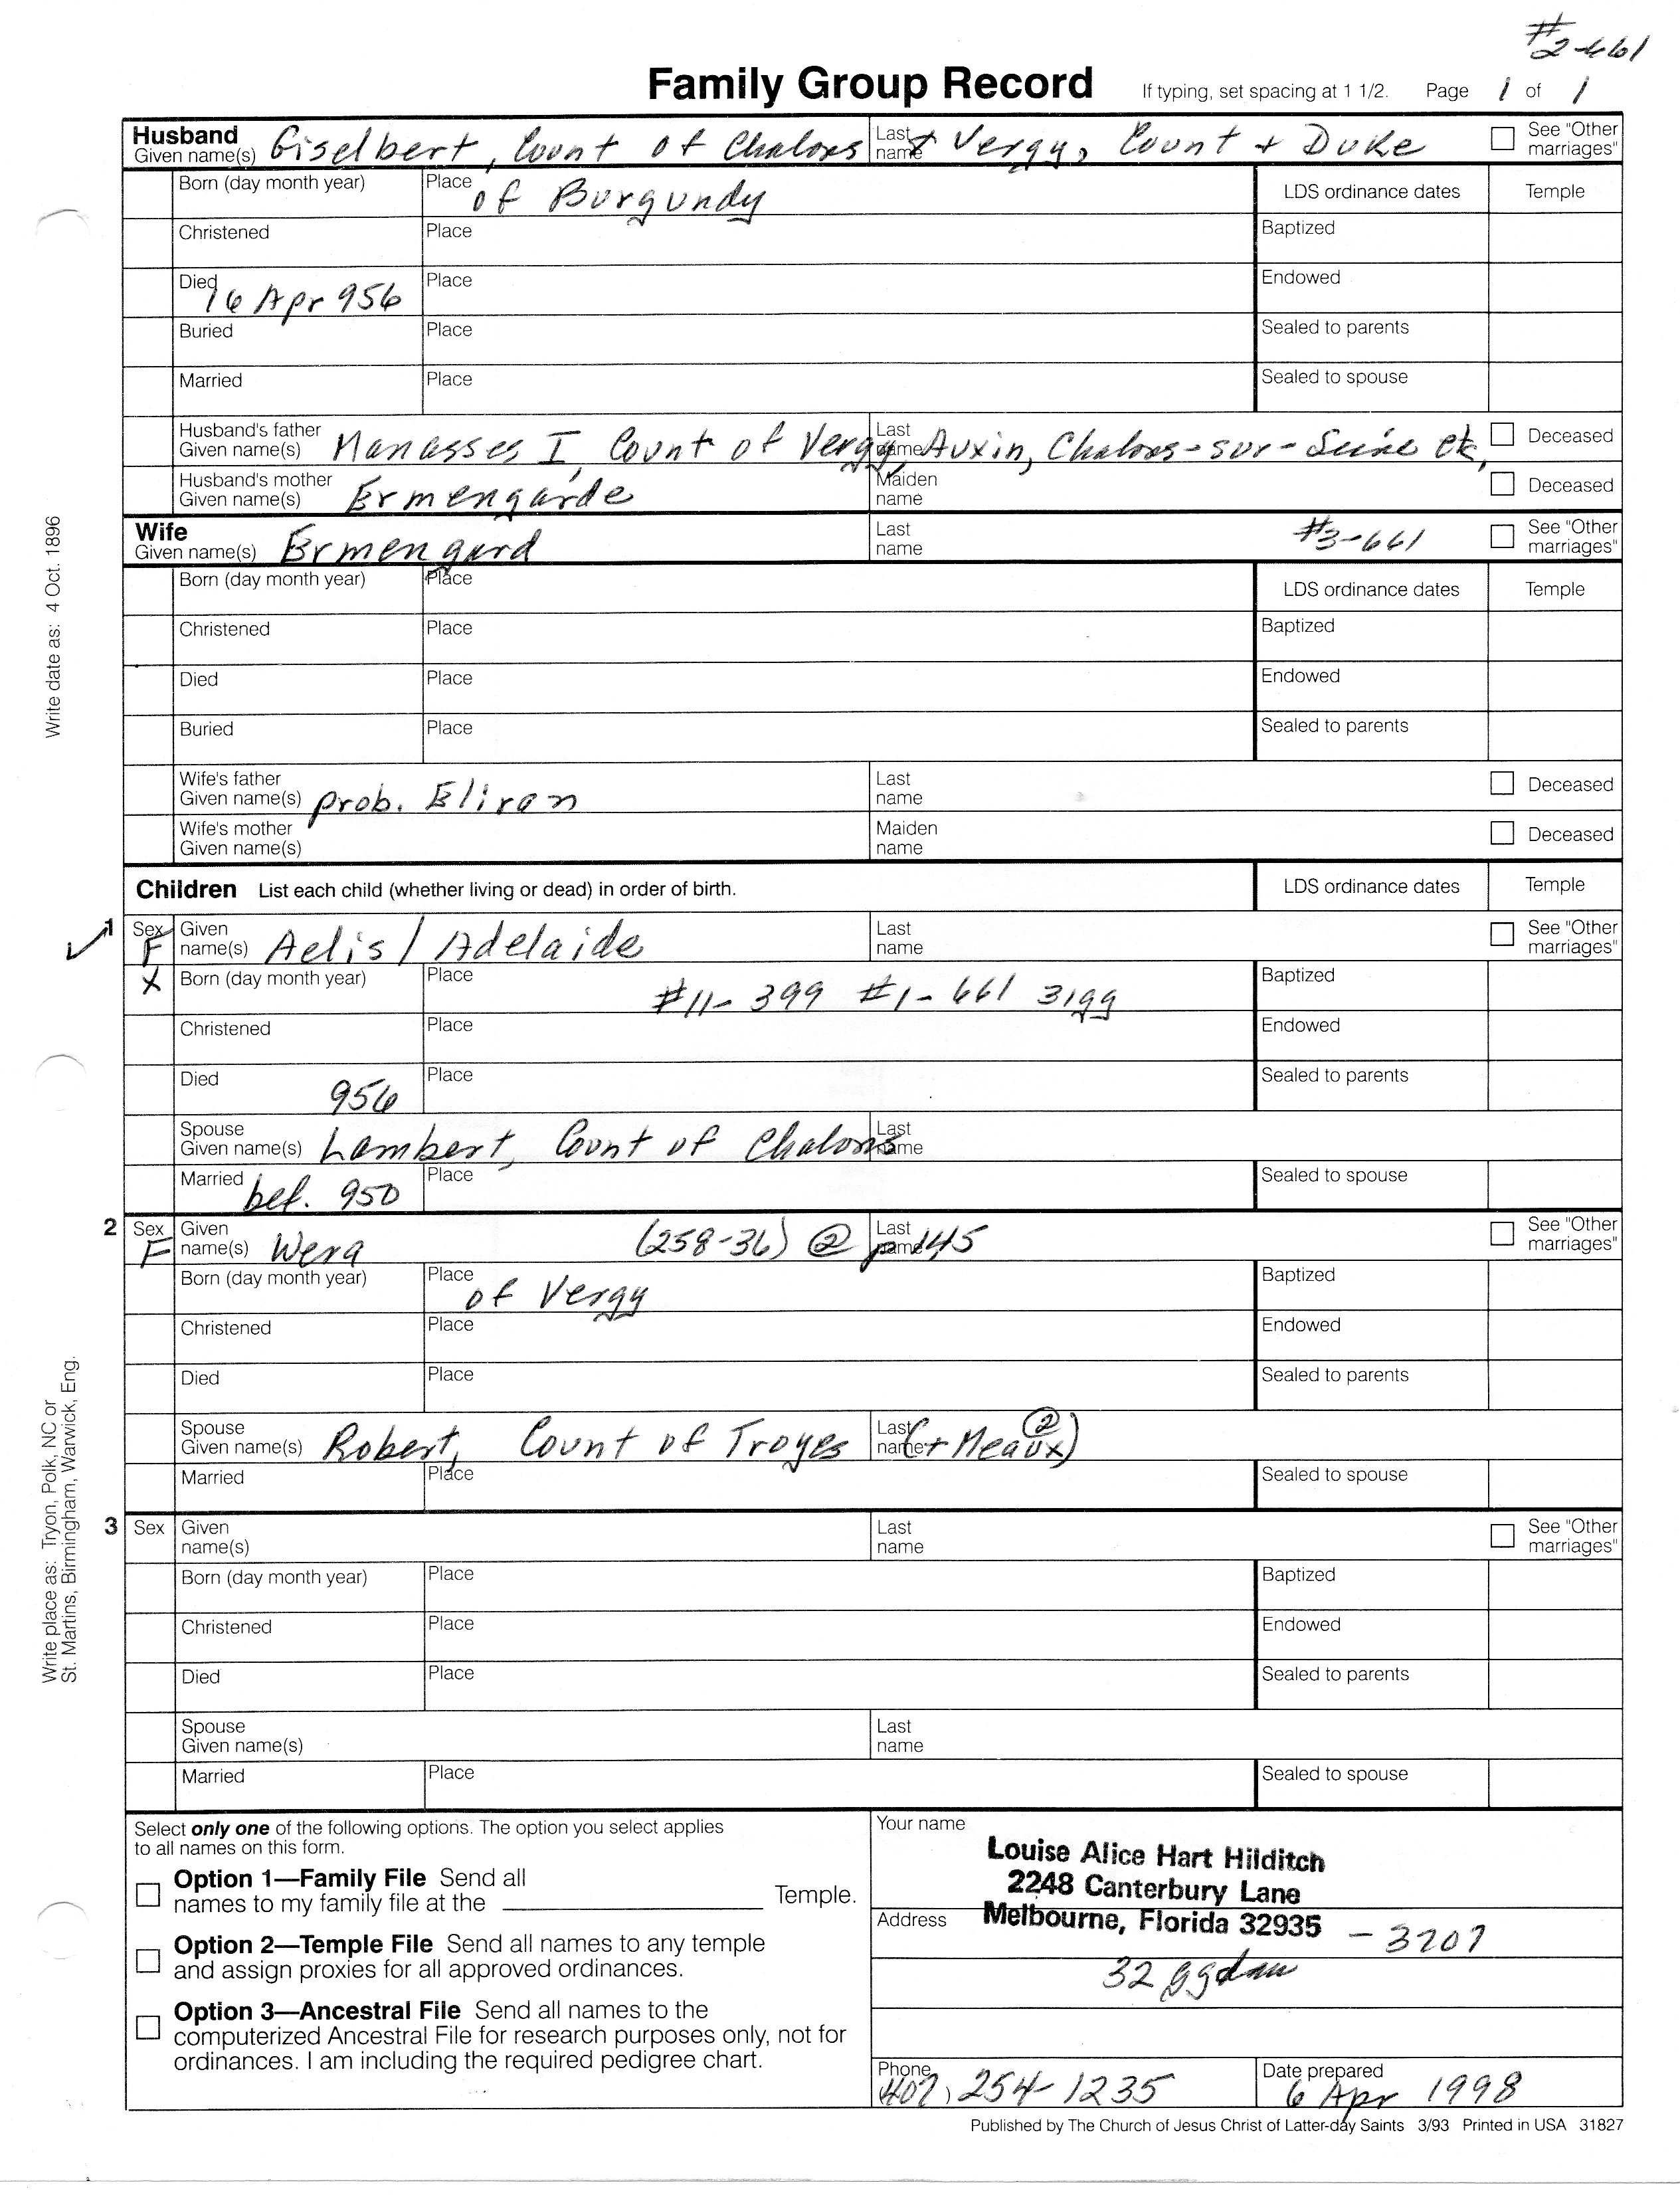 #2-661
Family Group Record If typing, set spacing at 1 1/2. Page 1 of 1
Husband
Given name(s) Giselbert, Count of Chalons Last name + Vergy, Count + Duke See "Other marriages"
Born (day month year) Place of Burgundy LDS ordinance dates Temple
Christened Place Baptized
Died 16 Apr 956 Place Endowed
Buried Place Sealed to parents
Married Place Sealed to spouse
Husband's father Given name(s) Manasses I, Count of Vergy, Last name Auxin, Chalons-sur-Seine etc, Deceased
Husband's mother Given name(s) Ermengarde Maiden name Deceased
Wife
Given name(s) Ermengard Last name #3-661 See "Other marriages"
Born (day month year) Place LDS ordinance dates Temple
Christened Place Baptized
Died Place Endowed
Buried Place Sealed to parents
Wife's father Given name(s) prob. Eliran Last name Deceased
Wife's mother Given name(s) Maiden name Deceased
Children List each child (whether living or dead) in order of birth. LDS ordinance dates Temple
1 Sex F Given name(s) Aelis / Adelaide Last name See "Other marriages"
X Born (day month year) Place #11-399 #1-661 31gg Baptized
Christened Place Endowed
Died 956 Place Sealed to parents
Spouse Given name(s) Lambert, Count of Chalons Last name
Married bef. 950 Place Sealed to spouse
2 Sex F Given name(s) Wera (258-36) @ Last name p 145 See "Other marriages"
Born (day month year) Place of Vergy Baptized
Christened Place Endowed
Died Place Sealed to parents
Spouse Given name(s) Robert, Count of Troyes Last name (+ Meaux) 2
Married Place Sealed to spouse
3 Sex Given name(s) Last name See "Other marriages"
Born (day month year) Place Baptized
Christened Place Endowed
Died Place Sealed to parents
Spouse Given name(s) Last name
Married Place Sealed to spouse
Select only one of the following options. The option you select applies
to all names on this form.
Option 1—Family File Send all
names to my family file at the Temple.
Option 2—Temple File Send all names to any temple
and assign proxies for all approved ordinances.
Option 3—Ancestral File Send all names to the
computerized Ancestral File for research purposes only, not for
ordinances. I am including the required pedigree chart.
Your name
Louise Alice Hart Hilditch
2248 Canterbury Lane
Address Melbourne, Florida 32935 - 3207
32
Phone 407, 254-1235 Date prepared 6 Apr 1998
Published by The Church of Jesus Christ of Latter-day Saints 3/93 Printed in USA 31827
Write date as: 4 Oct. 1896
Write place as: Tryon, Polk, NC or
St. Martins, Birmingham, Warwick, Eng.